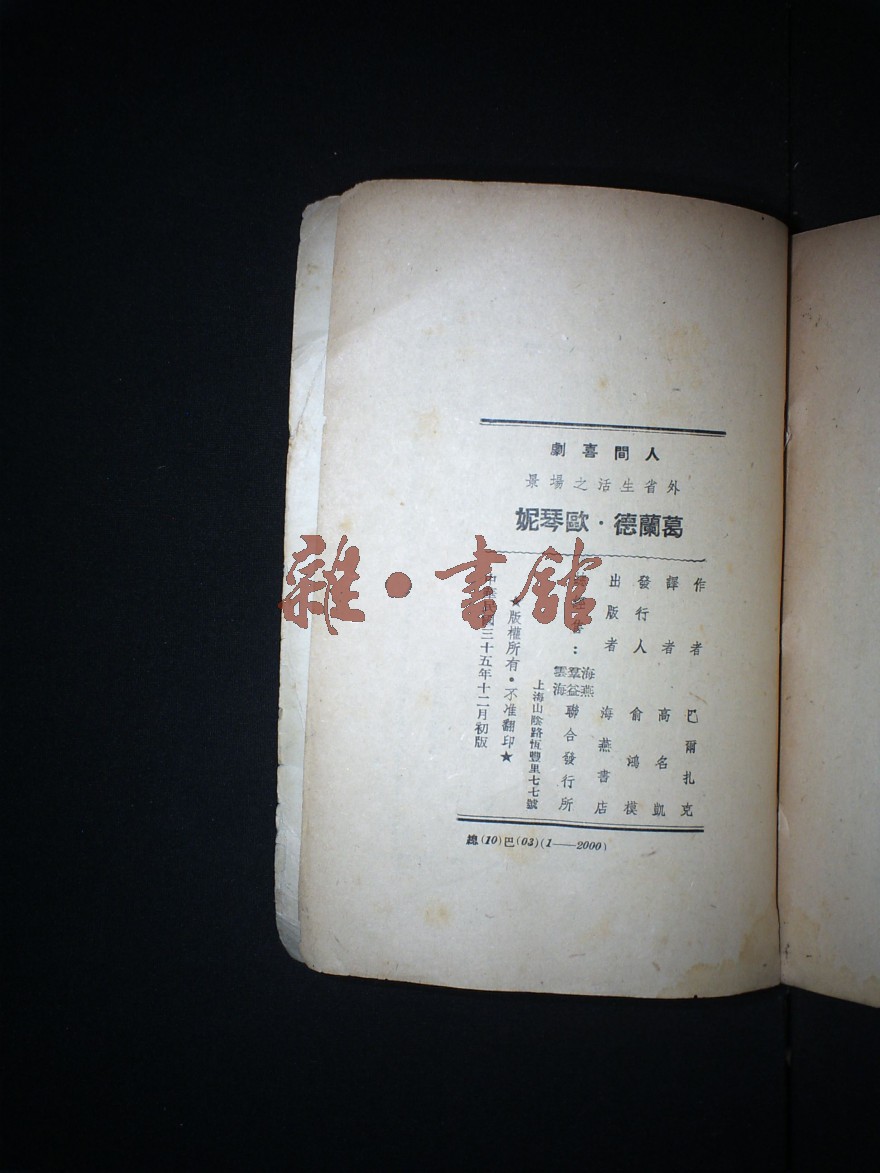 人間喜劇
外省生活之場景
葛蘭德·歐琴妮
作者 巴爾扎克
譯者 高名凱
發行人 俞鴻模
出版者 海燕書店
：海燕 羣益 雲海 聯合發行所
上海山陰路恆豐里七七號
★版權所有·不准翻印★
中華民國三十五年十二月初版
總(10)巴(03)(1——2000)
雜·書舘